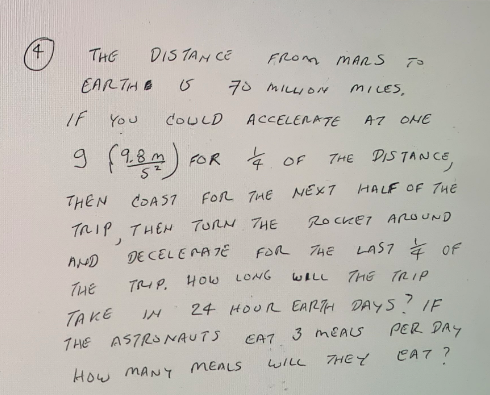 4 THE DISTANCE FROM MARS TO
EARTH IS 70 MILLION MILES.
IF YOU COULD ACCELERATE AT ONE
g (9.8 m/s²) FOR 1/4 OF THE DISTANCE,
THEN COAST FOR THE NEXT HALF OF THE
TRIP, THEN TURN THE ROCKET AROUND
AND DECELERATE FOR THE LAST 1/4 OF
THE TRIP. HOW LONG WILL THE TRIP
TAKE IN 24 HOUR EARTH DAYS? IF
THE ASTRONAUTS EAT 3 MEALS PER DAY
HOW MANY MEALS WILL THEY EAT?